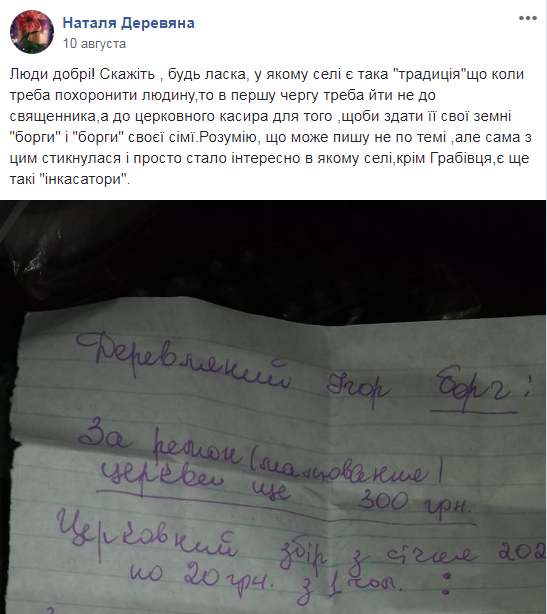 Наталя Деревяна
10 августа
Люди добрі! Скажіть , будь ласка, у якому селі є така "традиція"що коли
треба похоронити людину,то в першу чергу треба йти не до
священника,а до церковного касира для того ,щоби здати її свої земні
"борги" і "борги" своєї сімї.Розумію, що може пишу не по темі ,але сама з
цим стикнулася і просто стало інтересно в якому селі,крім Грабівця,є ще
такі "інкасатори".
Деревляний Ігор борг:
За ремон (малювання)
церкви ще 300 грн.
Церковний збір з січня 202
по 20 грн. з 1 чол. :